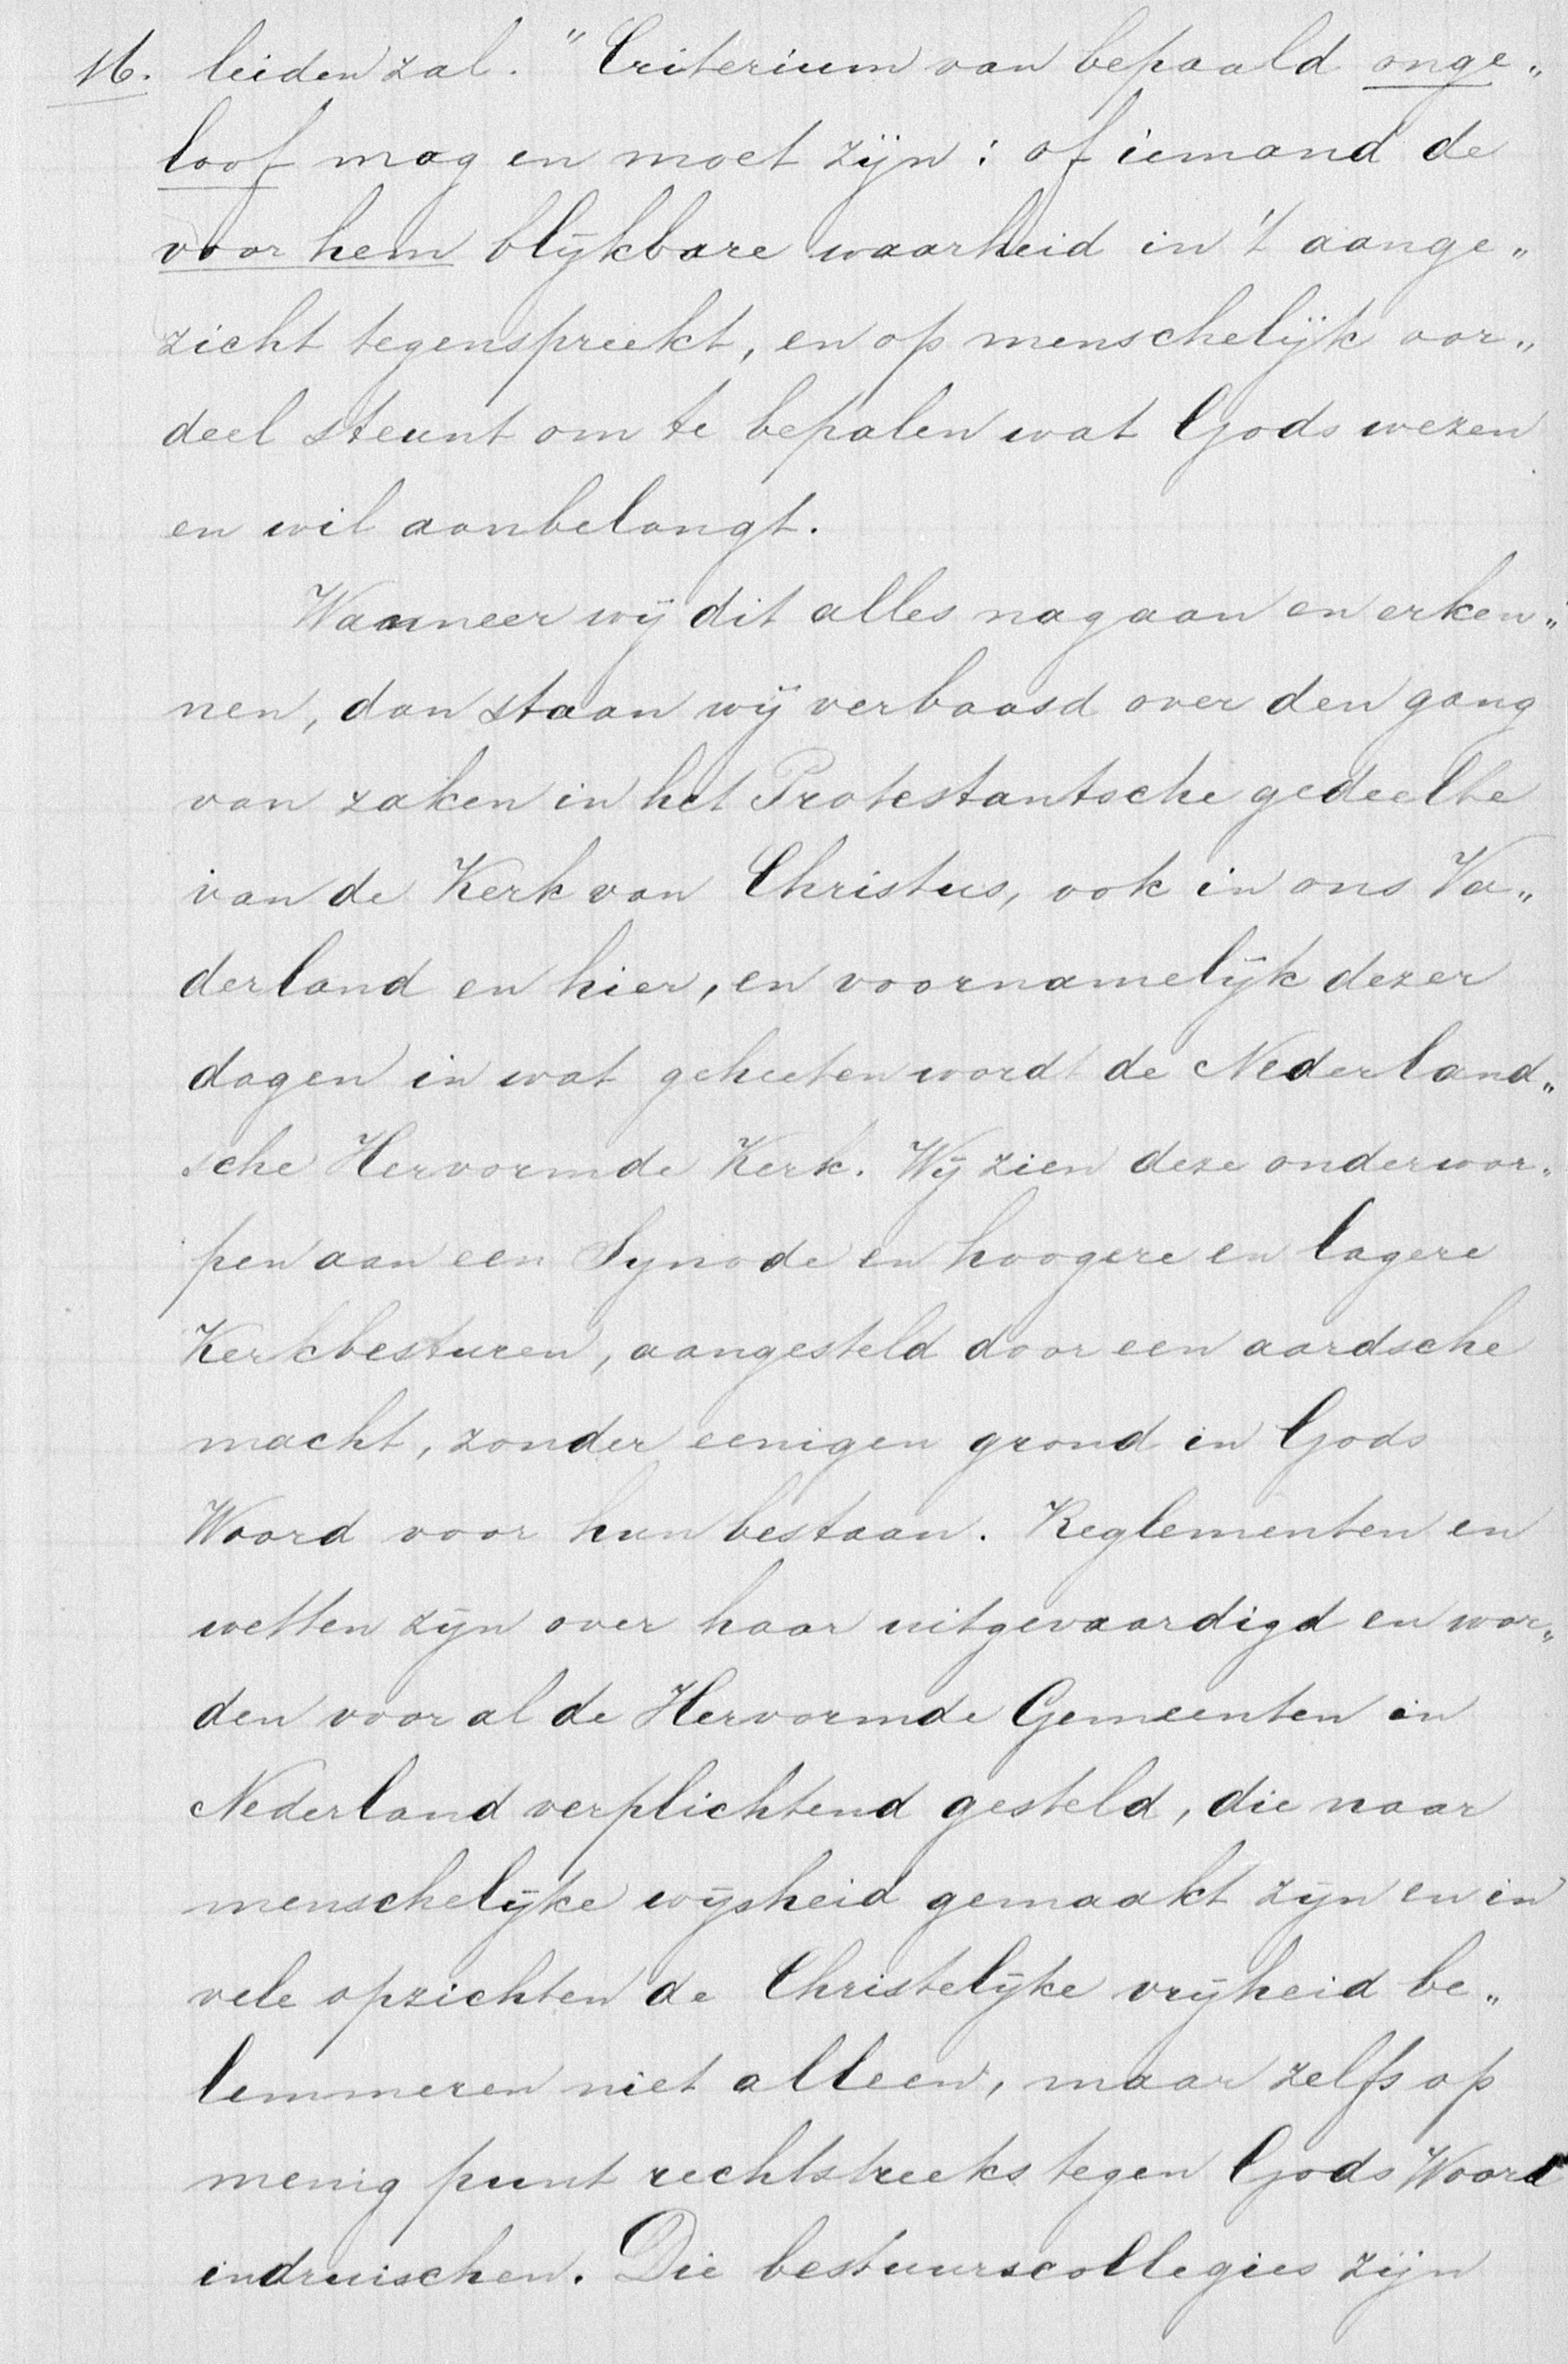 16. leiden zal. " Criterium van bepaald onge„
loof mag en moet zijn: of iemand de
voor hem blijkbare waarheid in 't aange„
zicht tegenspreekt, en op menschelijk oor„
deel steunt om te bepalen wat Gods wezen
en wil aanbelangt.
Wanneer wij dit alles nagaan en erken„
nen, dan staan wij verbaasd over den gang
van zaken in het Protestantsche gedeelte
van de Kerk van Christus, ook in ons Va„
derland en hier, en voornamelijk dezer
dagen in wat geheeten wordt de Nederland„
sche Hervormde Kerk. Wij zien deze onderwor„
pen aan een Synode en hoogere en lagere
Kerkbesturen, aangesteld door een aardsche
macht, zonder eenigen grond in Gods
Woord voor hun bestaan. Reglementen en
wetten zijn over haar uitgevaardigd en wor„
den voor al de Hervormde Gemeenten in
Nederland verplichtend gesteld, die naar
menschelijke wijsheid gemaakt zijn en in
vele opzichten de Christelijke vrijheid be„
lemmeren niet alleen, maar zelfs op
menig punt rechtstreeks tegen Gods Woord
indruischen. Die bestuurscollegies zijn